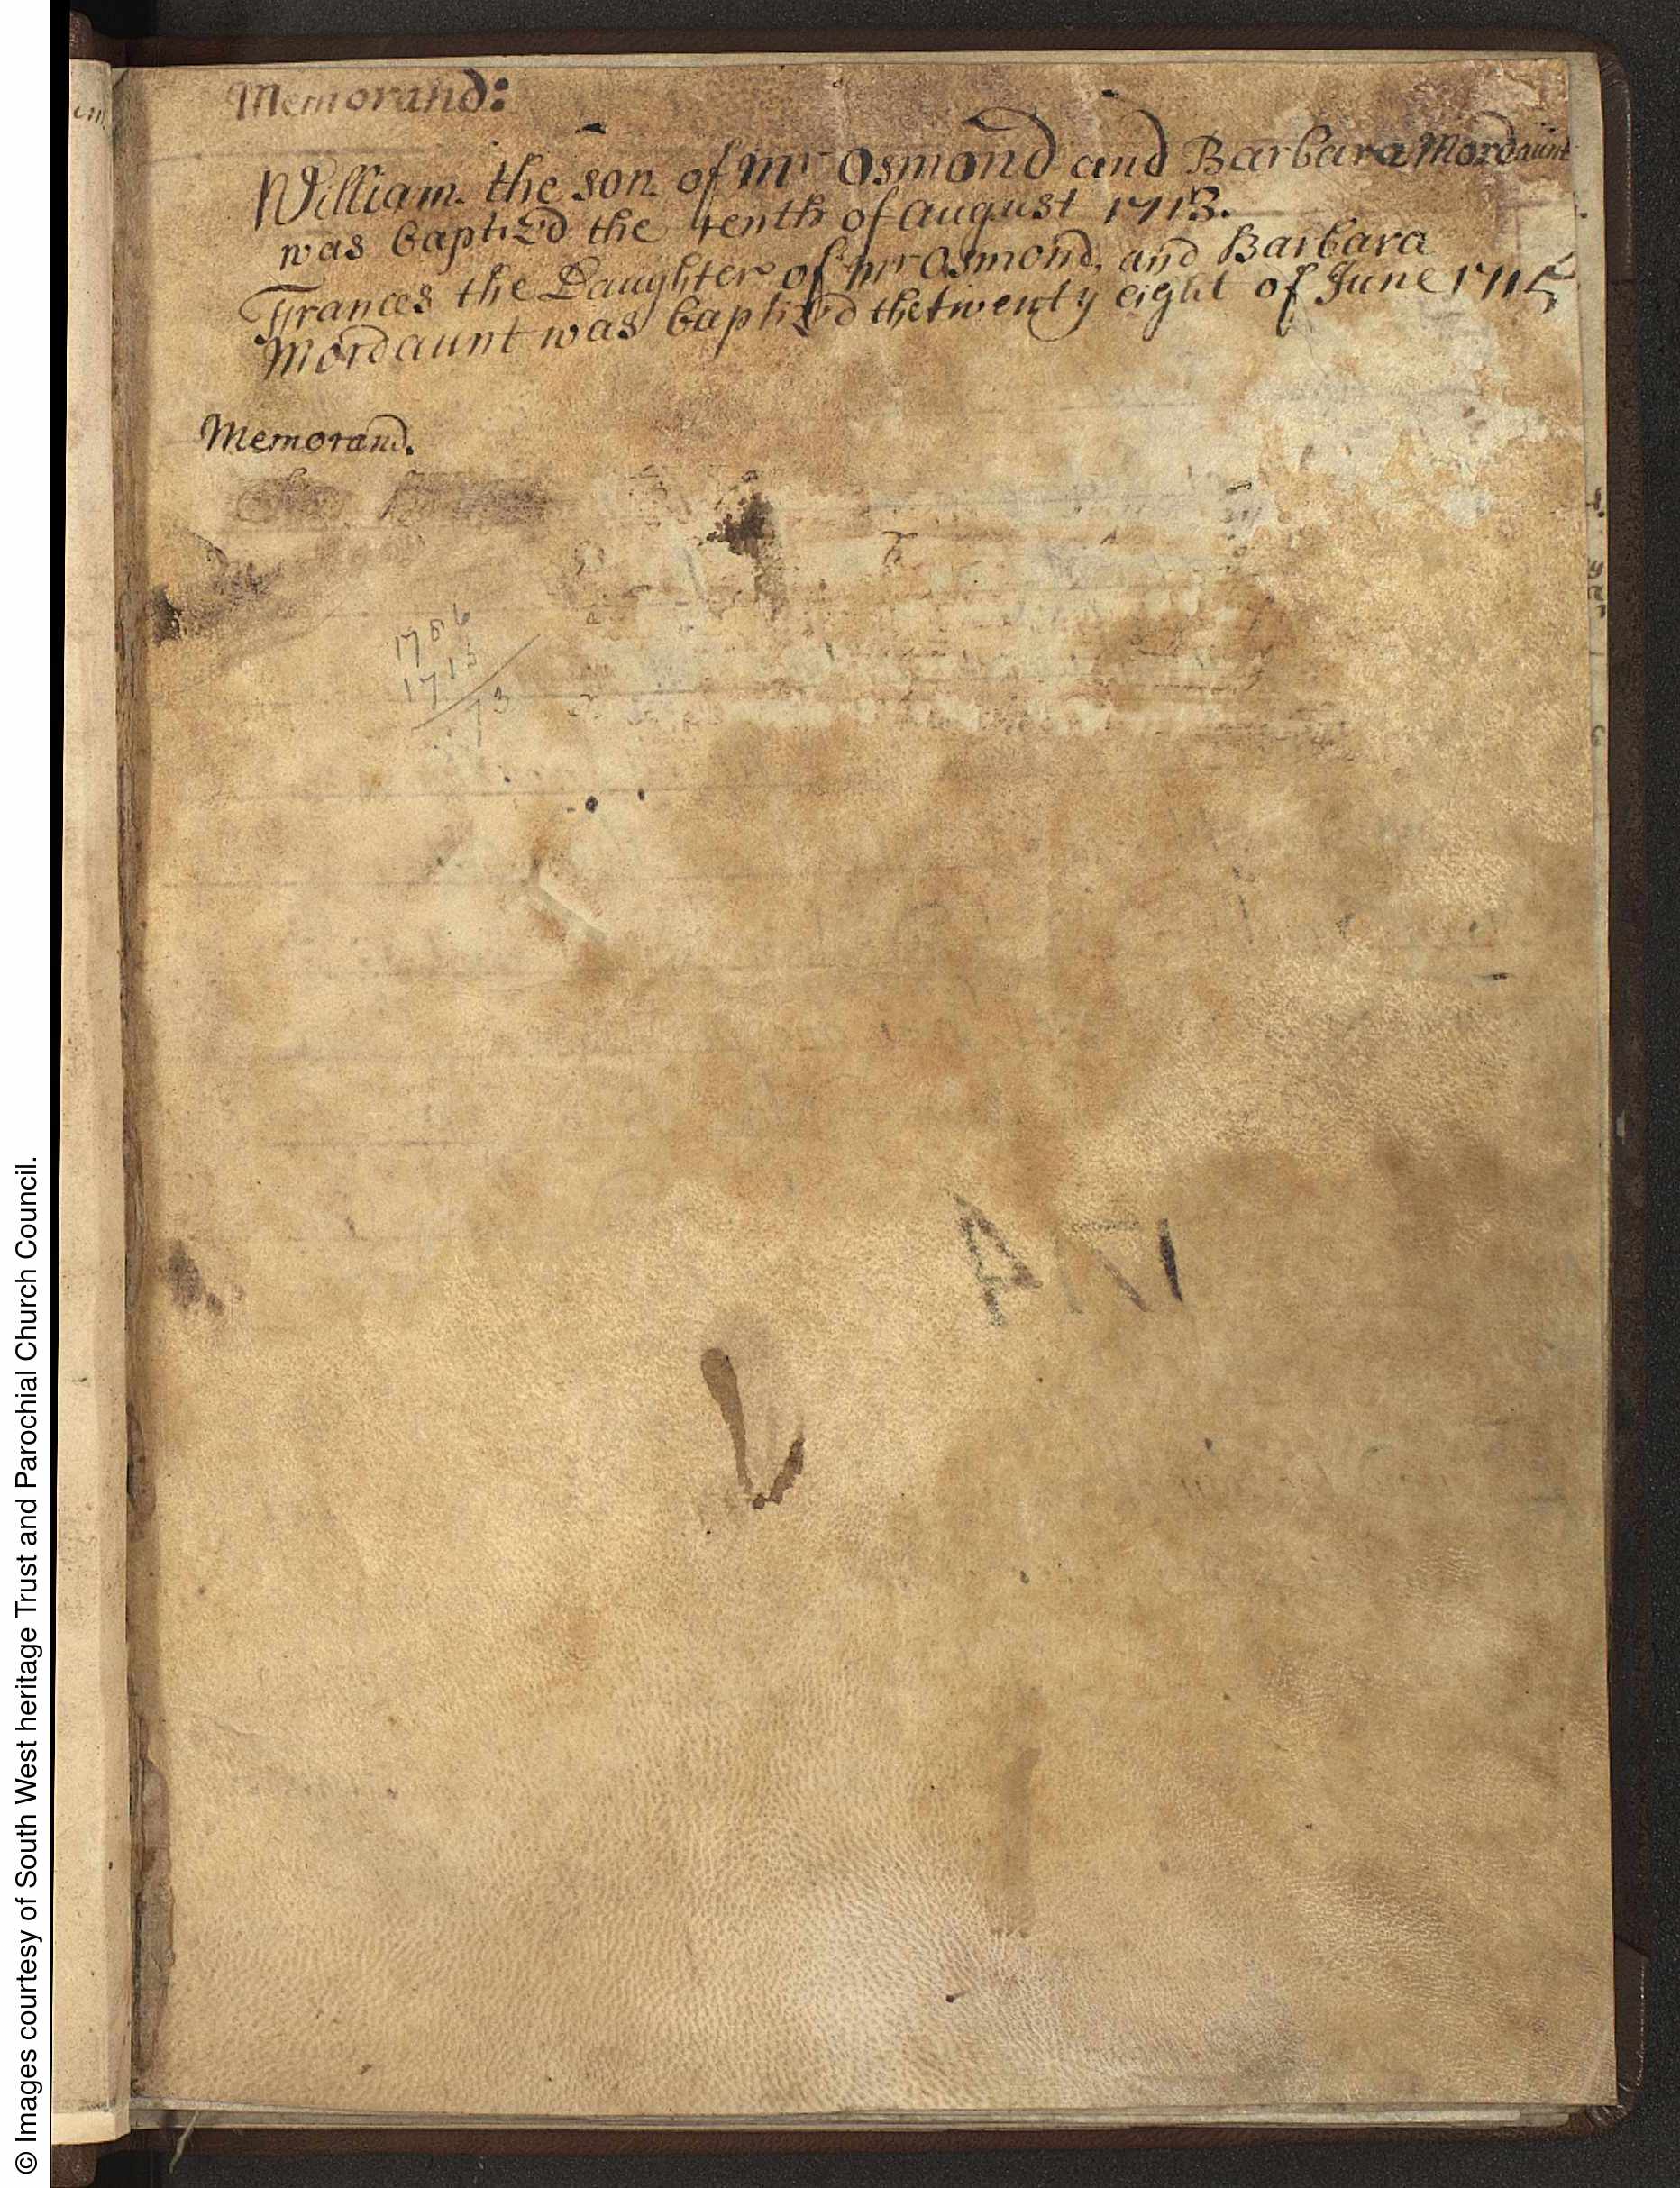 Memorand:
William the son of mr Osmond and Barbara Mordaunt
was baptiz'd the tenth of August 1713.
Frances the Daughter of mr Osmond, and Barbara
Mordaunt was baptiz'd the twenty eight of June 1715
Memorand.
1786
1713
73
174
© Images courtesy of South West heritage Trust and Parochial Church Council.